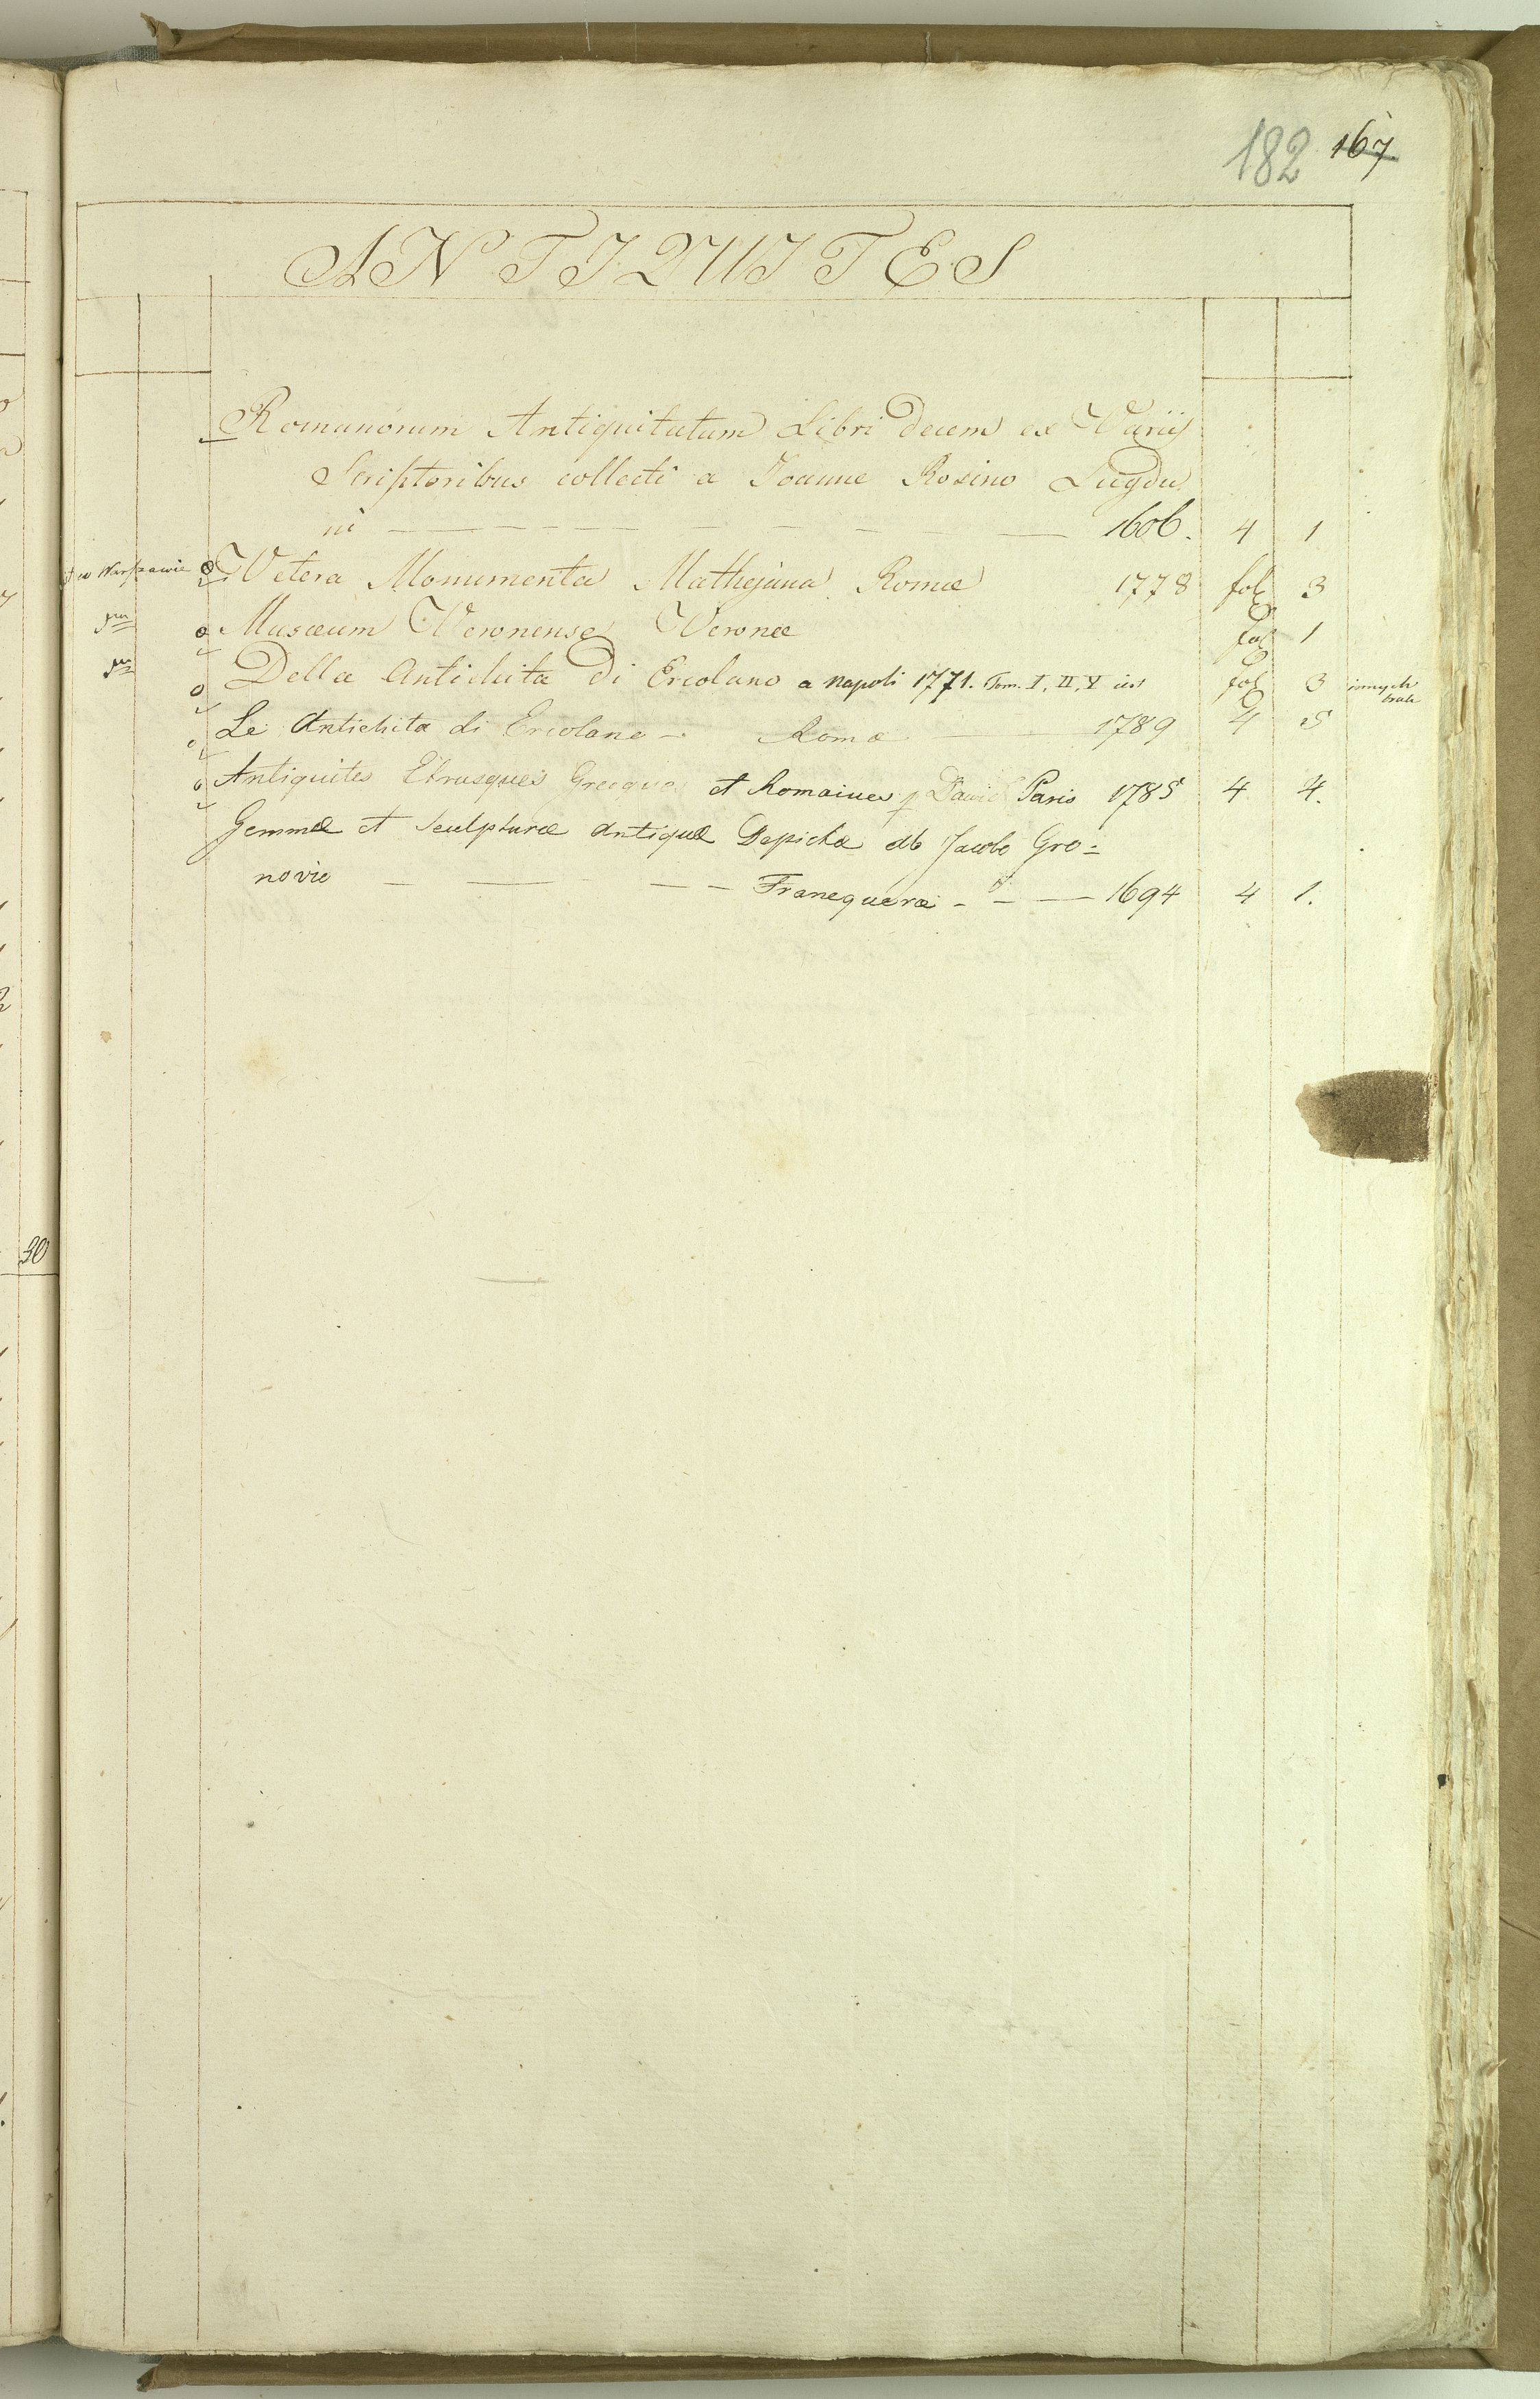 182 167
ANTIQUITES
Romanorum Antiquitatum Libri decem ex Variis
Scriptoribus collecti a Joanne Rosino Lugdu
ni 1606. 4 1
w Warszawie Vetera Monumenta Mathejana Romæ 1778 fol 3
Musæum Veronense Veronæ fol 1
Della Antichita di Ercolano a Napoli 1771. Tom. I, II, V fol 3 innych brak
Le Antichita di Ercolano - Roma 1789 4 5
Antiquites Etrusques Grecques et Romaines p David Paris 1785 4 4.
Gemmæ et Sculpturæ Antiquæ Depictæ ab Jacobo Gro=
novio Franequeræ - 1694 4 1.
30